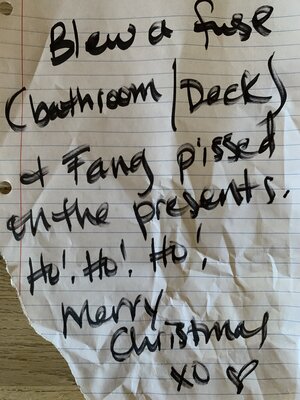 Blew a fuse
(bathroom | Deck)
& Fang pissed
on the presents.
Ho! Ho! Ho!
Merry
Christmas
xo ♡